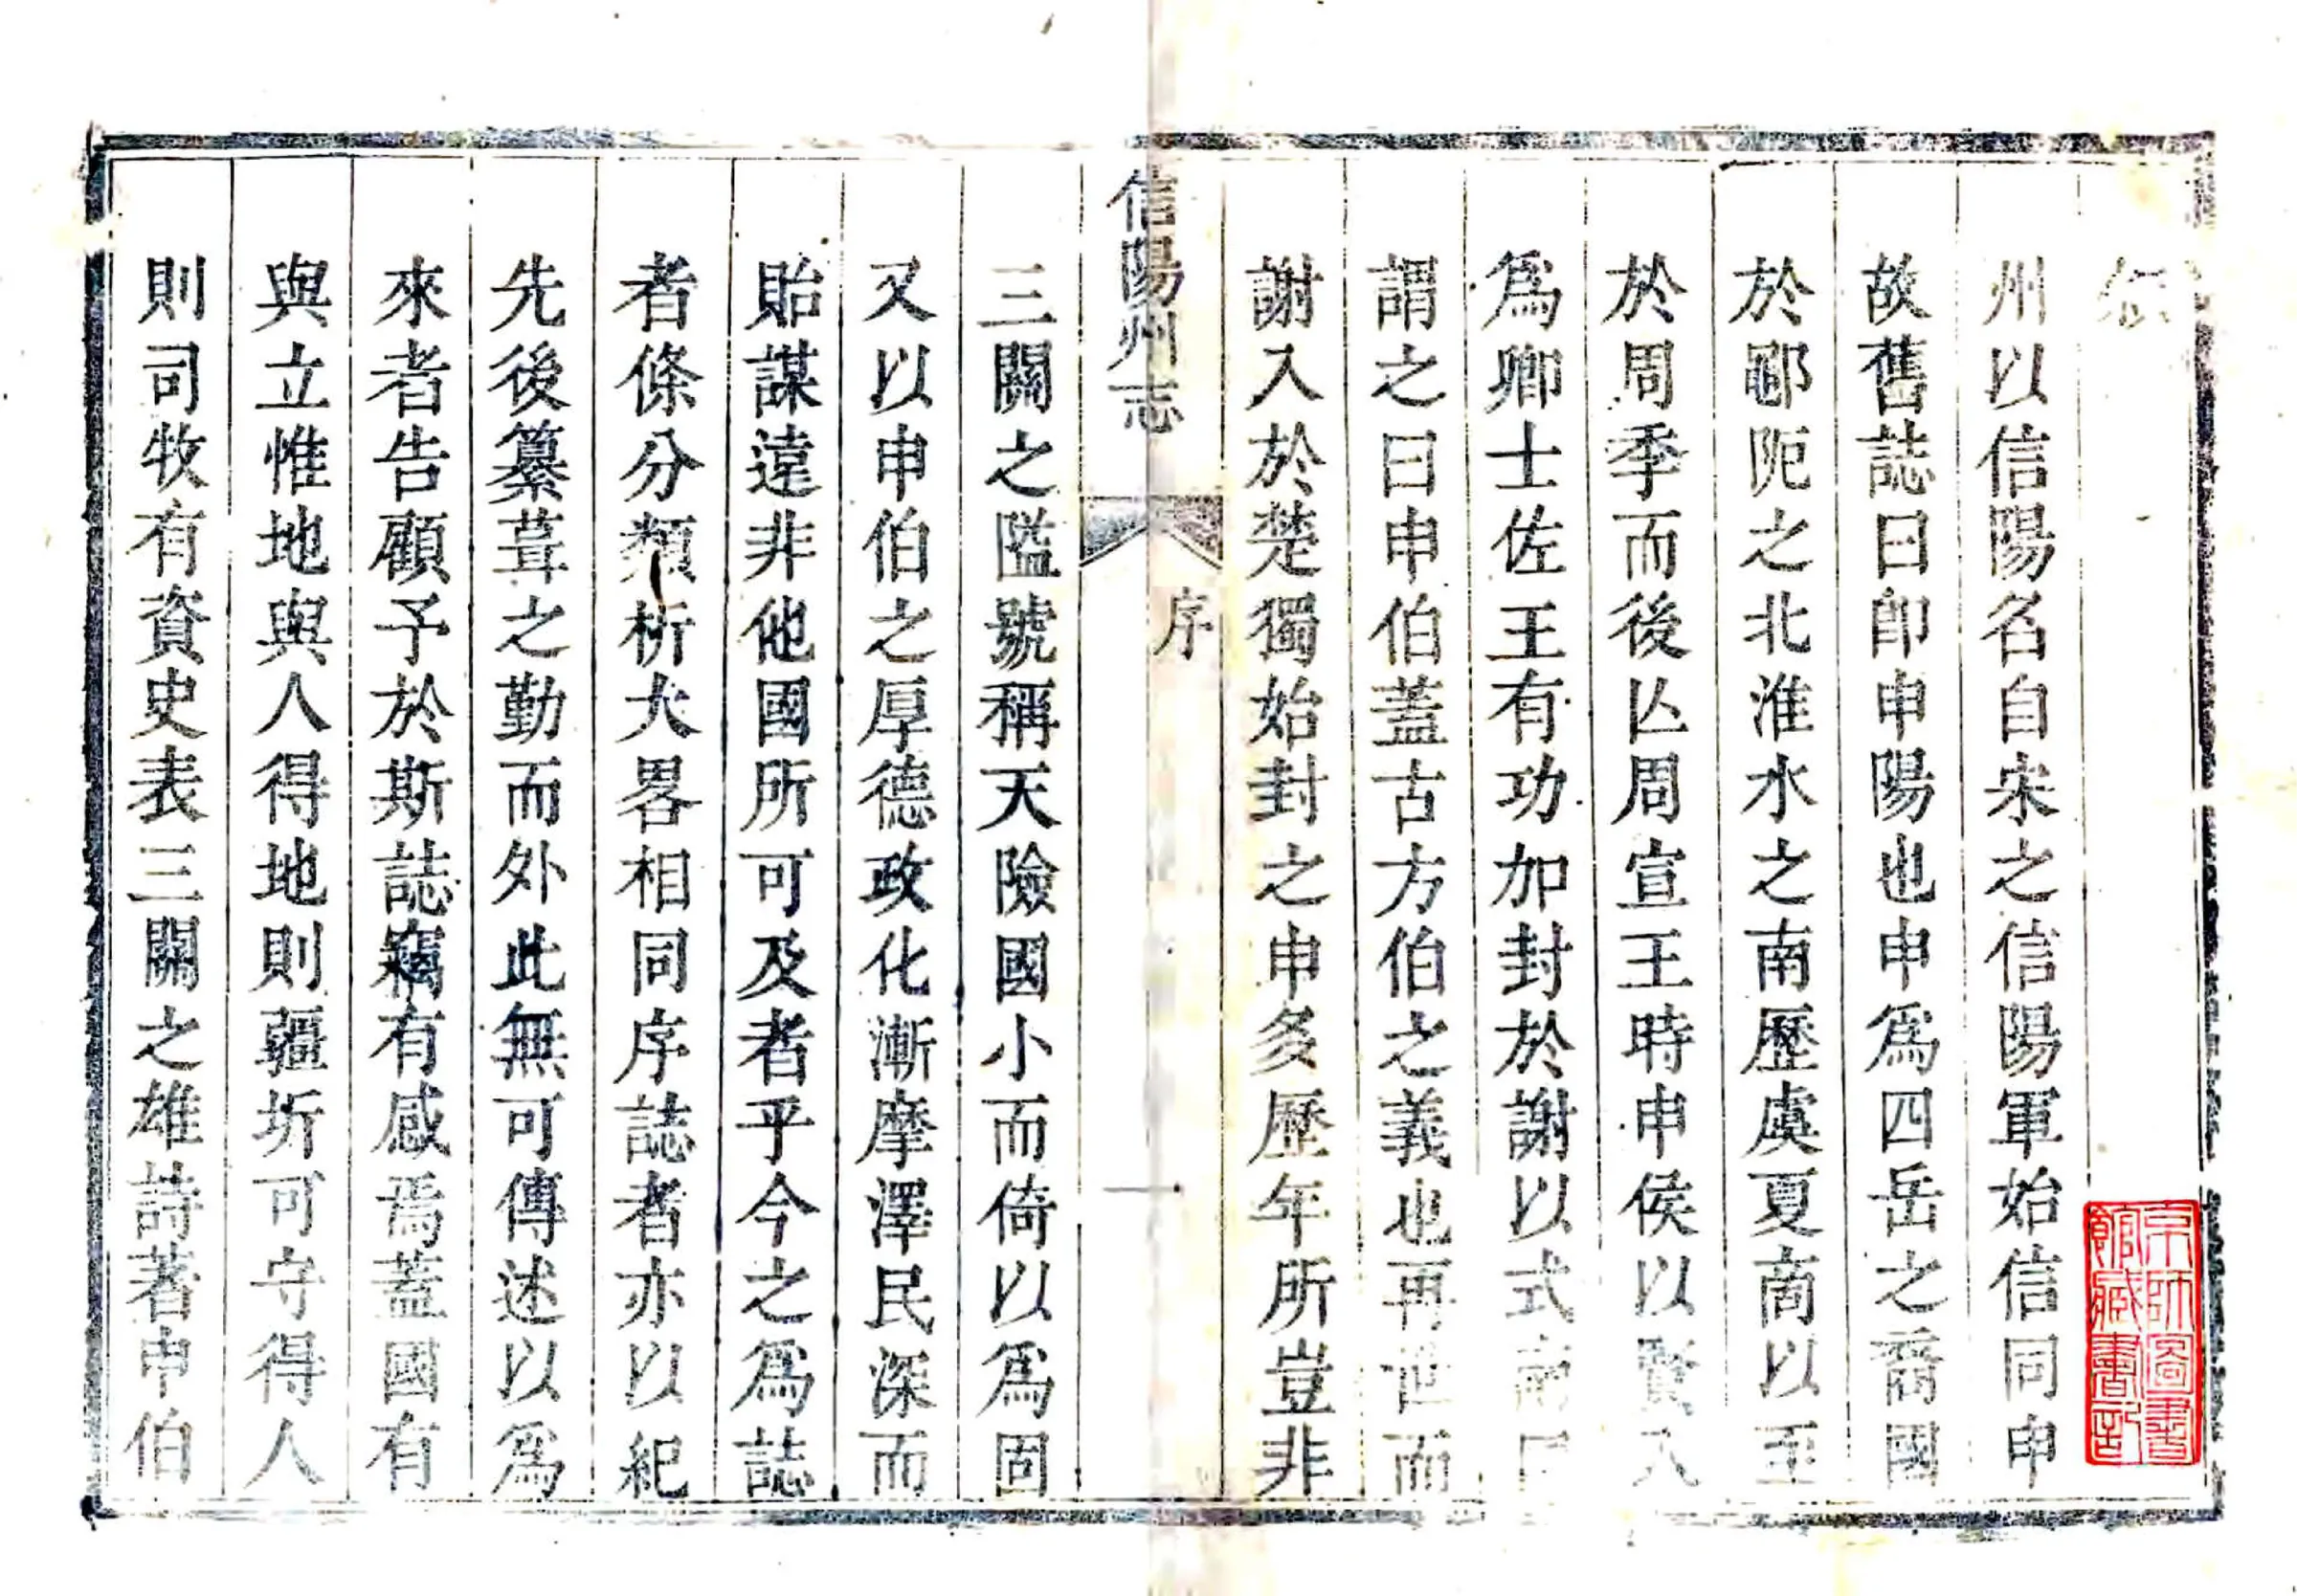 州以信陽名自宋之信陽軍始信同申
故舊誌曰卽申陽也申爲四岳之裔國
於鄳阨之北淮水之南歷虞夏商以至
於周季而後亾周宣王時申侯以賢入
爲卿士佐王有功加封於謝以式南
謂之曰申伯蓋古方伯之義也再世而
謝入於楚獨始封之申多歷年所豈非
信陽州志
序
一
三關之隘號稱天險國小而倚以爲固
又以申伯之厚德政化漸摩澤民深而
貽謀遠非他國所可及者乎今之爲誌
者條分類析大畧相同序誌者亦以紀
先後纂葺之勤而外此無可傳述以爲
來者告顧予於斯誌竊有感焉蓋國有
與立惟地與人得地則疆圻可守得人
則司牧有資史表三關之雄詩著申伯
京師圖書
館藏書記